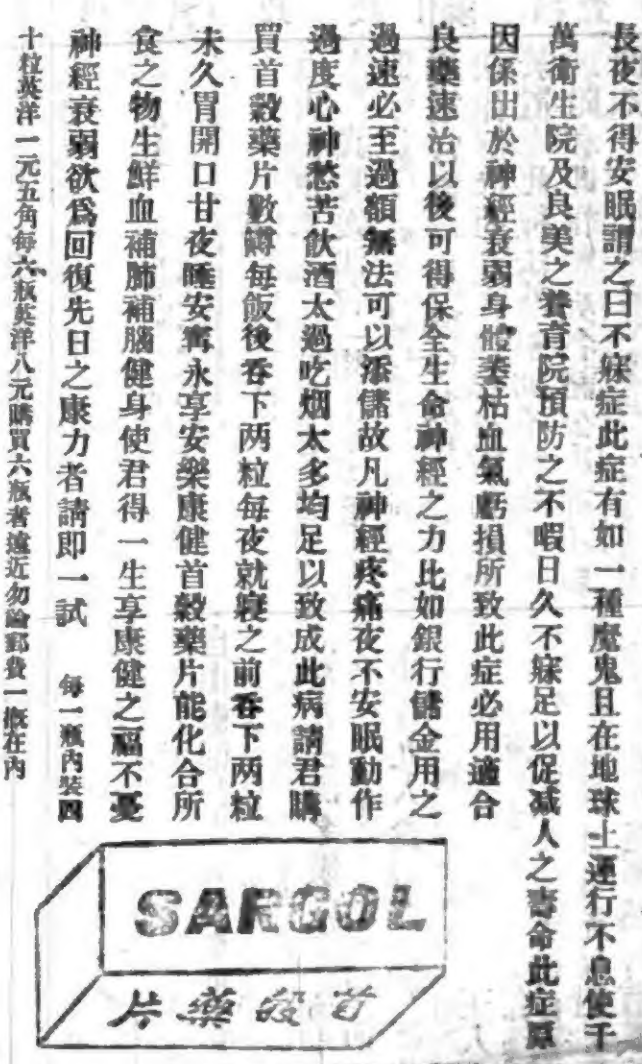 長夜不得安眠謂之曰不寐症此症有如一種魔鬼且在地球上運行不息使千
萬衛生院及良美之養育院預防之不暇日久不寐足以促減人之壽命此症原
因係出於神經衰弱身體萎枯血氣虧損所致此症必用適合
良藥速治以後可得保全生命神經之力比如銀行儲金用之
過速必至過額無法可以添儲故凡神經疼痛夜不安眠動作
過度心神愁苦飲酒太過吃烟太多均足以致成此病請君購
買首穀藥片數罇每飯後吞下两粒每夜就寢之前吞下两粒
未久胃開口甘夜睡安寗永享安樂康健首穀藥片能化合所
食之物生鮮血補肺補腦健身使君得一生享康健之福不憂
神經衰弱欲爲回復先日之康力者請即一試 每一瓶內裝四
十粒英洋一元五角每六瓶英洋八元購買六瓶者遠近勿論郵費一概在內
SARGOL
片藥穀首